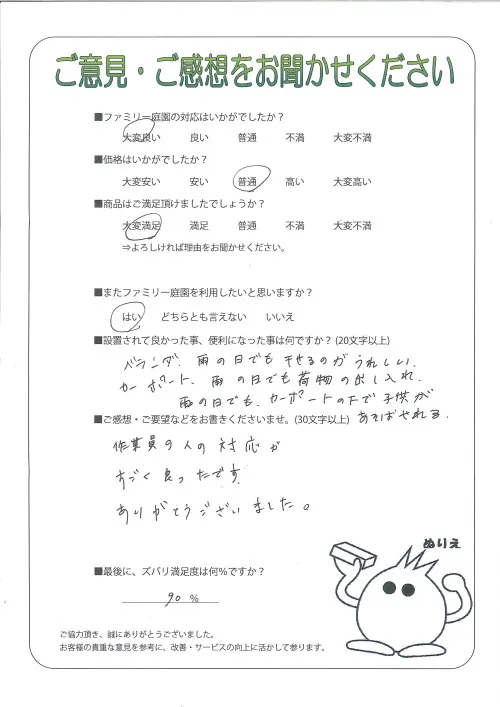 ご意見・ご感想をお聞かせください
■ファミリー庭園の対応はいかがでしたか？
大変良い 良い 普通 不満 大変不満
■価格はいかがでしたか？
大変安い 安い 普通 高い 大変高い
■商品はご満足頂けましたでしょうか？
大変満足 満足 普通 不満 大変不満
⇒よろしければ理由をお聞かせください。
■またファミリー庭園を利用したいと思いますか？
はい どちらとも言えない いいえ
■設置されて良かった事、便利になった事は何ですか？(20文字以上)
ベランダ、雨の日でも干せるのがうれしい。
カーポート、雨の日でも荷物の出し入れ、
雨の日でも、カーポートの下で子供が
あそばせれる。
■ご感想・ご要望などをお書きくださいませ。(30文字以上)
作業員の人の対応が
すごく良ったです。
ありがとうございました。
ぬりえ
■最後に、ズバリ満足度は何％ですか？
90 %
ご協力頂き、誠にありがとうございました。
お客様の貴重な意見を参考に、改善・サービスの向上に活かして参ります。